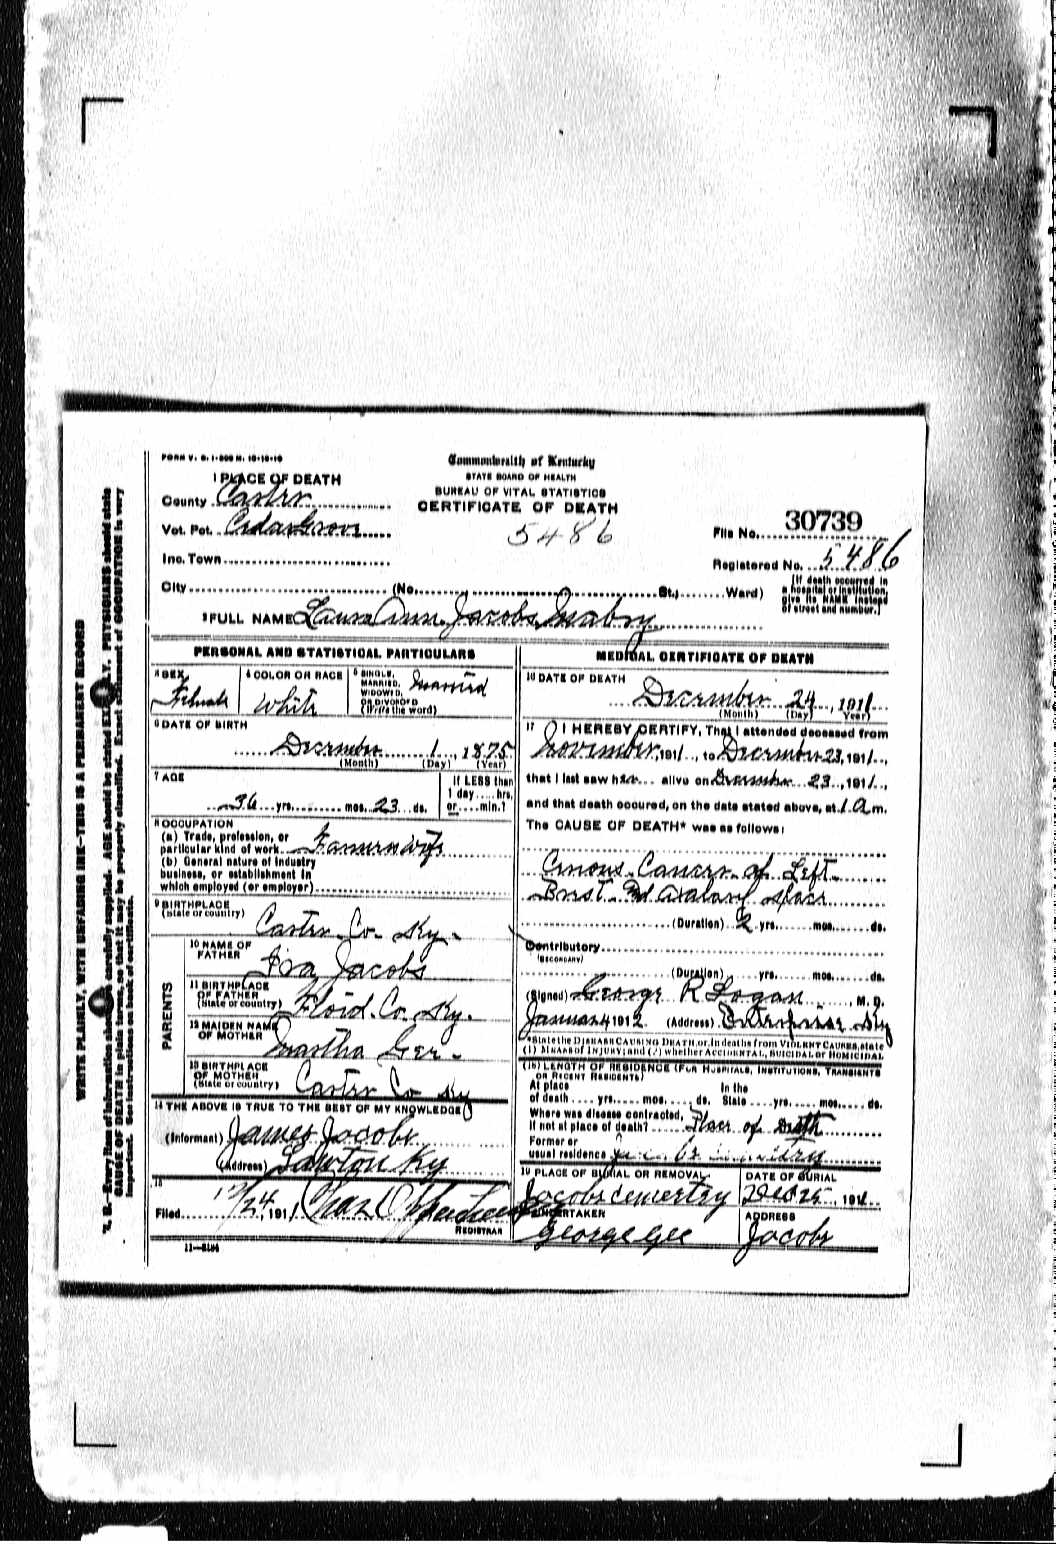 FORM V. S. 1-200 M. 10-10-10
Commonwealth of Kentucky
STATE BOARD OF HEALTH
BUREAU OF VITAL STATISTICS
CERTIFICATE OF DEATH
5486
1 PLACE OF DEATH
County Carter
Vot. Pct. Cedar Grove
Inc. Town
File No. 30739
Registered No. 5486
City (No. St.; Ward)
[If death occurred in
a hospital or institution,
give its NAME instead
of street and number.]
2 FULL NAME Laura Ann Jacobs Mabry
PERSONAL AND STATISTICAL PARTICULARS
3 SEX
Female
4 COLOR OR RACE
White
5 SINGLE,
MARRIED,
WIDOWED,
OR DIVORCED
(Write the word)
Married
6 DATE OF BIRTH
December 1, 1875
(Month) (Day) (Year)
7 AGE
36 yrs. mos. 23 ds.
If LESS than
1 day hrs.
or min.?
8 OCCUPATION
(a) Trade, profession, or
particular kind of work Farmers wife
(b) General nature of industry
business, or establishment in
which employed (or employer)
9 BIRTHPLACE
(State or country)
Carter Co. Ky.
PARENTS
10 NAME OF
FATHER
Ira Jacobs
11 BIRTHPLACE
OF FATHER
(State or country)
Floid. Co. Ky.
12 MAIDEN NAME
OF MOTHER
Martha Gee
13 BIRTHPLACE
OF MOTHER
(State or country)
Carter Co Ky
14 THE ABOVE IS TRUE TO THE BEST OF MY KNOWLEDGE
(Informant) James Jacobs
(Address) Lawton Ky
15
Filed 12/24, 1911 Chas
REGISTRAR
11—3184
MEDICAL CERTIFICATE OF DEATH
16 DATE OF DEATH
December 24, 1911
(Month) (Day) Year)
17 I HEREBY CERTIFY, That I attended deceased from
November, 1911, to December 23, 1911,
that I last saw her alive on December 23, 1911,
and that death occured, on the date stated above, at 1 a m.
The CAUSE OF DEATH* was as follows:
Cancer of Left
Brest and axalary space
(Duration) 2 yrs. mos. ds.
Contributory
(SECONDARY)
(Duration) yrs. mos. ds.
(Signed) George R Logan, M. D.
January 4 1912 (Address) Enterprise Ky
*State the DISEASE CAUSING DEATH or, in deaths from VIOLENT CAUSES, state
(1) MEANS OF INJURY; and (2) whether ACCIDENTAL, SUICIDAL or HOMICIDAL
(18) LENGTH OF RESIDENCE (FOR HOSPITALS, INSTITUTIONS, TRANSIENTS
OR RECENT RESIDENTS)
At place In the
of death yrs. mos. ds. State yrs. mos. ds.
Where was disease contracted,
If not at place of death? Place of Death
Former or
usual residence
19 PLACE OF BURIAL OR REMOVAL
Jacobs Cemertry
DATE OF BURIAL
Dec 25, 1911
20 UNDERTAKER
George Gee
ADDRESS
Jacobs
WRITE PLAINLY, WITH UNFADING INK—THIS IS A PERMANENT RECORD
N. B.—Every item of information should be carefully supplied. AGE should be stated EXACTLY. PHYSICIANS should state
CAUSE OF DEATH in plain terms, so that it may be properly classified. Exact statement of OCCUPATION is very
important. See instructions on back of certificate.